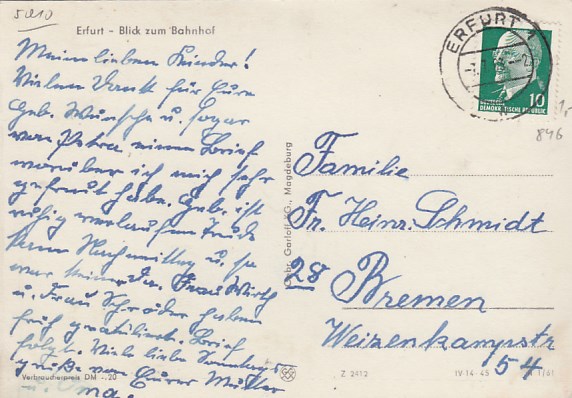 5010
Erfurt - Blick zum Bahnhof
Meine lieben Kinder!
Vielen Dank für Eure
Geb. Wünsche u. sogar
von Petra einen Brief
worüber ich mich sehr
gefreut habe. Geb. ist
ruhig verlaufen
kam Nachmittag u. so
war keiner da. Frau Wirth
u. Frau Schröder haben
früh gratuliert. Brief
folgt. Viele liebe Sonntags
grüße von Eurer Mutter
u. Oma.
Verbraucherpreis DM -.20
Gebr. Garloff KG., Magdeburg
ERFURT 1
10
DEUTSCHE DEMOKRATISCHE REPUBLIK
1,-
846
Familie
Fr. Heinz Schmidt
28 Bremen
Weizenkampstr
54
Z 2412
IV-14-45
1/61